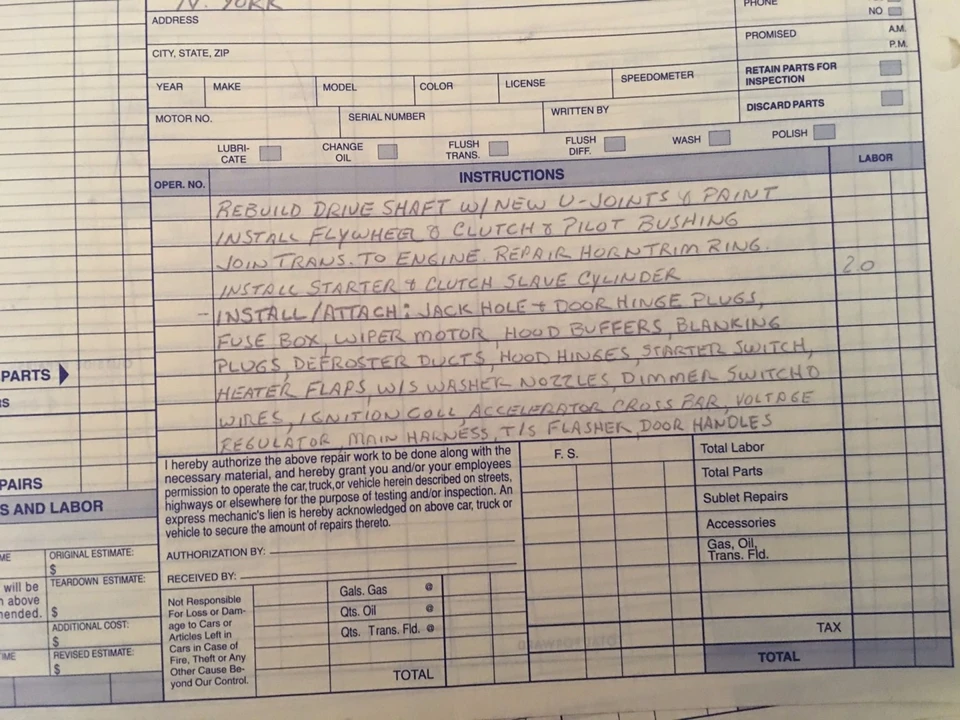 N. YORK
PHONE
NO
ADDRESS
PROMISED
A.M.
P.M.
CITY, STATE, ZIP
RETAIN PARTS FOR
INSPECTION
YEAR MAKE MODEL COLOR LICENSE SPEEDOMETER
DISCARD PARTS
MOTOR NO. SERIAL NUMBER WRITTEN BY
LUBRI-
CATE
CHANGE
OIL
FLUSH
TRANS.
FLUSH
DIFF.
WASH
POLISH
OPER. NO. INSTRUCTIONS LABOR
REBUILD DRIVE SHAFT W/ NEW U-JOINTS & PAINT
INSTALL FLYWHEEL & CLUTCH & PILOT BUSHING
JOIN TRANS. TO ENGINE. REPAIR HORN TRIM RING.
INSTALL STARTER & CLUTCH SLAVE CYLINDER 20
- INSTALL/ATTACH: JACK HOLE & DOOR HINGE PLUGS,
FUSE BOX, WIPER MOTOR, HOOD BUFFERS, BLANKING
PLUGS, DEFROSTER DUCTS, HOOD HINGES, STARTER SWITCH,
HEATER FLAPS, W/S WASHER NOZZLES, DIMMER SWITCH &
WIRES, IGNITION COIL, ACCELERATOR CROSS BAR, VOLTAGE
REGULATOR, MAIN HARNESS, T/S FLASHER, DOOR HANDLES
PARTS
S
PAIRS
S AND LABOR
ME
ORIGINAL ESTIMATE:
$
will be
n above
mended.
TEARDOWN ESTIMATE:
$
ADDITIONAL COST:
$
IME
REVISED ESTIMATE:
$
I hereby authorize the above repair work to be done along with the
necessary material, and hereby grant you and/or your employees
permission to operate the car, truck, or vehicle herein described on streets,
highways or elsewhere for the purpose of testing and/or inspection. An
express mechanic's lien is hereby acknowledged on above car, truck or
vehicle to secure the amount of repairs thereto.
AUTHORIZATION BY:
RECEIVED BY:
Not Responsible
For Loss or Dam-
age to Cars or
Articles Left in
Cars in Case of
Fire, Theft or Any
Other Cause Be-
yond Our Control.
Gals. Gas @
Qts. Oil @
Qts. Trans. Fld. @
TOTAL
F. S.
Total Labor
Total Parts
Sublet Repairs
Accessories
Gas, Oil,
Trans. Fld.
TAX
TOTAL